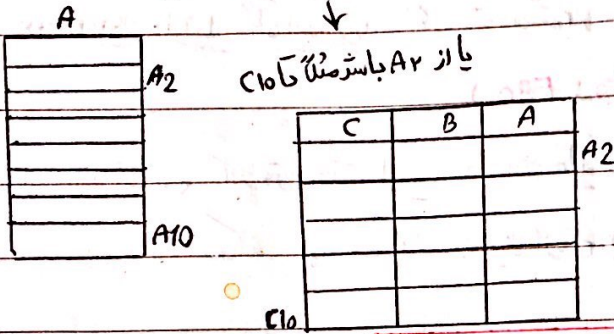 A
A2
A10
یا از A2 باشد مثلاً تا C10
C B A
A2
C10